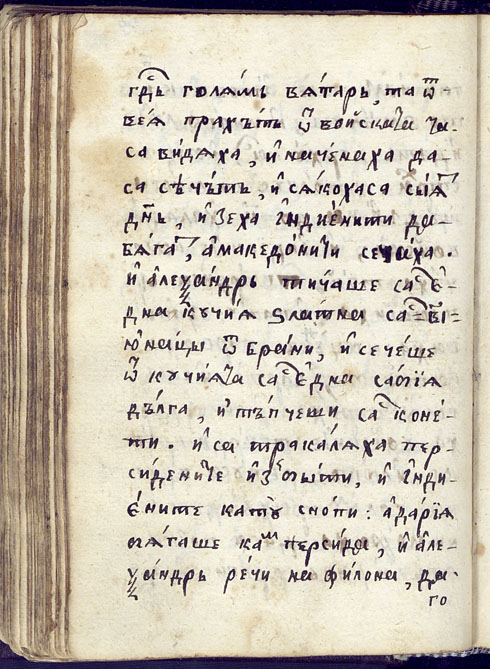 гдⷭ҇ь голямь вятарь, та ѿ
вея прахътъ ѿ войската та-
са видяха, и наченаха да-
са сѣчътъ, и сякохаса сыя
днь, и зеха индиените да-
бяга, а македоните сечаха.
и алеѯандрь тичаше са е-
дна кучия златна са ві=
юнацы ѿ брани, и сечеше
ѿ кучията са една сабія
дълга, и тъпчеши са коне-
ти. и са тракаляха пер-
сидените из пыти, и инди-
ените като снопи: а дарія
бягаше ка персидя, и але-
ѯандрь речи на филона, да
го